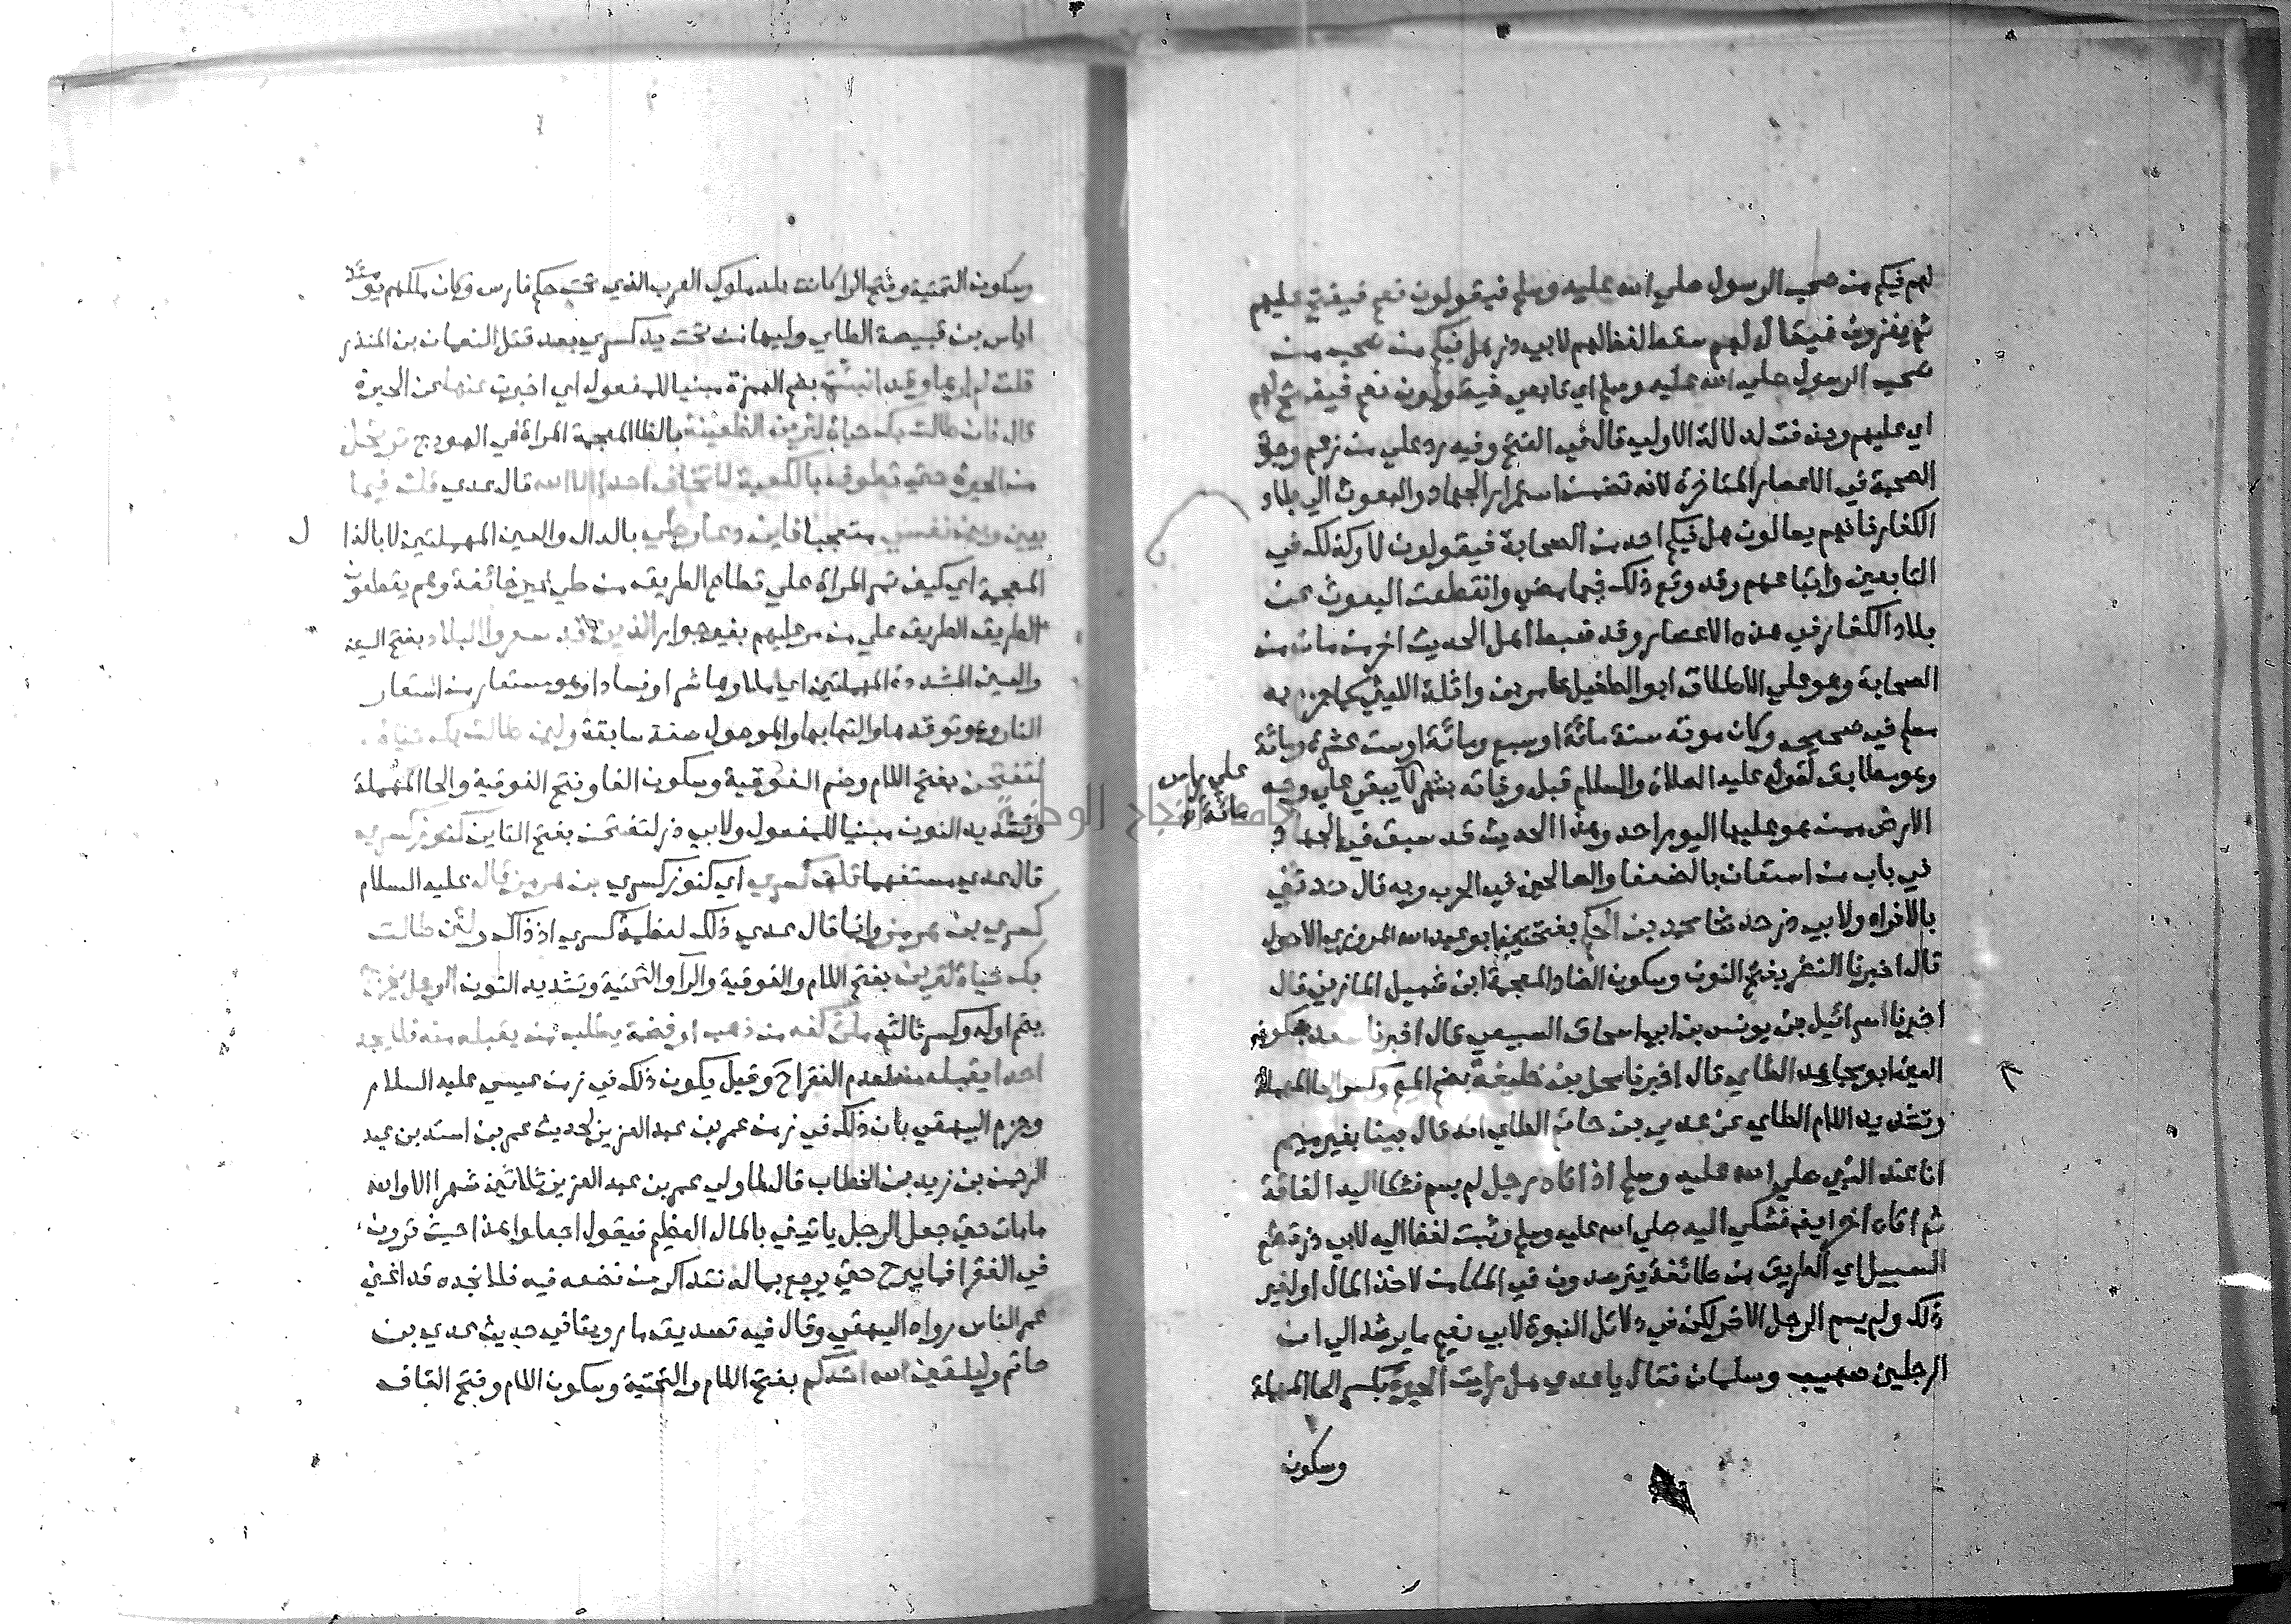 لهم فيكم من صحب الرسول صلي الله عليه وسلم فيقولون نعم فيفتح عليهم
ثم يغزون فيقال لهم سقط لفظ لهم لابي ذر هل فيكم من صحب من
صحب الرسول صلي الله عليه وسلم اي تابعي فيقولون نعم فيفتح لهم
اي عليهم وحذفت لدلالة الاولي قال في الفتح وفيه رد علي من زعم وجود
الصحبة في الاعصار المتاخرة لانه تضمن استمرار الجهاد والبعوث الي بلاد
الكفار فانهم يسالون هل فيكم احد من الصحابة فيقولون لا وكذلك في
التابعين واتباعهم وقد وقع ذلك فيما مضي وانقطعت البعوث عن
بلاد الكفار في هذه الاعصار وقد ضبط اهل الحديث اخر من مات من
الصحابة وهو علي الاطلاق ابو الطفيل عامر بن واثلة الليثي كما جزم به
مسلم في صحيحه وكان موته سنة مائة او سبع ومائة او ست عشرة ومائة
وهو مطابق لقوله عليه الصلاة والسلام قبل وفاته بشهر لا يبقي علي وجه
علي راس
مائة
الارض ممن هو عليها اليوم احد وهذا الحديث قد سبق في الجهاد
في باب من استعان بالضعفا والصالحين في الحرب وبه قال حدثني
بالافراد ولابي ذر حدثنا محمد بن الحكم بفتحتين ابو عبد الله المروزي الاحول
قال اخبرنا النضر بفتح النون وسكون الضاد المعجمة ابن شميل المازني قال
اخبرنا اسرائيل بن يونس بن ابي اسحاق السبيعي قال اخبرنا سعد بسكون
العين ابو مجاهد الطاي قال اخبرنا محل بن خليفة بضم الميم وكسر الحا المهملة
وتشديد اللام الطاي عن عدي بن حاتم الطاي انه قال بينا بغير ميم
انا عند النبي صلي الله عليه وسلم اذ اتاه رجل لم يسم فشكا اليه الفاقة
ثم اتاه اخر ايضه فشكي اليه صلي الله عليه وسلم وثبت لفظ اليه لابي ذر قطع
السبيل اي الطريق من طائفة يترصدون في المكامن لاخذ المال او لغير
ذلك ولم يسم الرجل الاخر لكن في دلائل النبوة لابي نعيم ما يرشد الي ان
الرجلين صهيب وسلمان فقال يا عدي هل رايت الحيرة بكسر الحا المهملة
وسكون
وسكون التحتية وفتح الرا كانت بلد ملوك العرب الذي تحت حكم فارس وكان ملكهم يومئذ
اياس بن قبيصة الطاي وليها من تحت يد كسري بعد قتل النعمان بن المنذر
قلت لم ارها وقد انبئت بضم الهمزة مبنيا للمفعول اي اخبرت عنها عن الحيرة
قال فان طالت بك حياة لترين الظعينة بالظا المعجمة المراة في الهودج ترتحل
من الحيرة حتي تطوف بالكعبة لا تخاف احدا الا الله قال عدي قلت فيما
بيني وبين نفسي متعجبا فاين دعار طي بالدال والعين المهملتين لا بالذا ل
المعجمة اي كيف تمر المراة علي قطاع الطريق من طي غير خائفة وهم يقطعون
الطريق علي من مر عليهم بغير جوار الذين قد سعروا البلاد بفتح السين
والعين المشددة المهملتين اي ملاوها شرا وفسادا وهو مستعار من استعار
النار وهو توقدها والتهابها والموصول صفة سابقة ولين طالت بك حياة
لتفتحن بفتح اللام وضم الفوقية وسكون الفا وفتح الفوقية والحا المهملة
وتشديد النون مبنيا للمفعول ولابي ذر لتفتحن بفتح التاين كنوز كسري
قال عدي مستفهما قلت كسري اي كنوز كسري بن هرمز قال عليه السلام
كسري بن هرمز وانما قال عدي ذلك لعظمة كسري اذ ذاك ولئن طالت
بك حياة لترين بفتح اللام والفوقية والرا والتحتية وتشديد النون الرجل يخرج
بضم اوله وكسر ثالثه ملئ كفه من ذهب او فضة يطلب من يقبله منه فلا يجد
احدا يقبله منه لعدم الفقرا ح وقيل يكون ذلك في زمن عيسي عليه السلام
وجزم البيهقي بان ذلك في زمن عمر بن عبد العزيز لحديث عمر بن اسيد بن عبد
الرحمن بن زيد بن الخطاب قال لما ولي عمر بن عبد العزيز ثلاثين شهرا الا والله
ما مات حتي جعل الرجل ياتيني بالمال العظيم فيقول اجعلوا هذا حيث ترون
في الفقرا فما يبرح حتي يرجع بماله نتذاكر من نضعه فيه فلا نجده قد اغني
عمر الناس رواه البيهقي وقال فيه تصديق ما روينا في حديث عدي بن
حاتم وليلقين الله احدكم بفتح اللام والتحتية وسكون اللام وفتح القاف